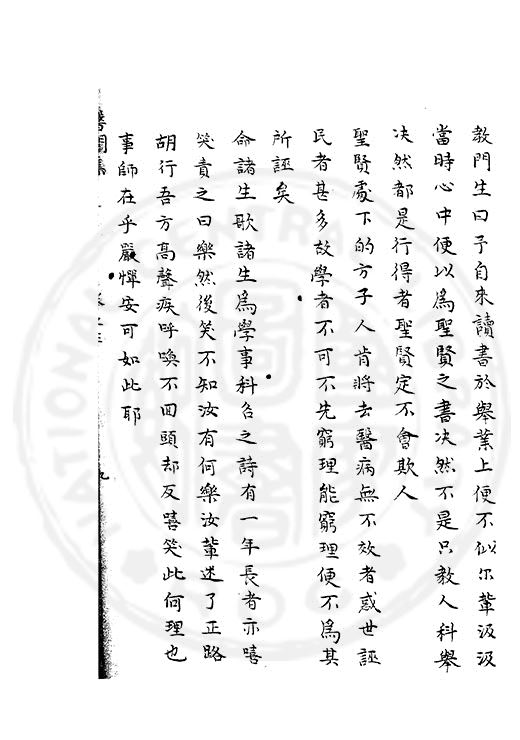 教門生曰予自來讀書於舉業上便不似尔輩汲汲
當時心中便以為聖賢之書决然不是只教人科舉
决然都是行得者聖賢定不會欺人
聖賢處下的方子人肯將去醫病無不效者惑世誣
民者甚多故學者不可不先窮理能窮理便不為其
所誣矣
命諸生歌諸生為學事科名之詩有一年長者亦嘻
笑責之曰樂然後笑不知汝有何樂汝輩迷了正路
胡行吾方高聲疾呼喚不回頭却反嘻笑此何理也
事師在乎嚴憚安可如此耶
醫閭集
九